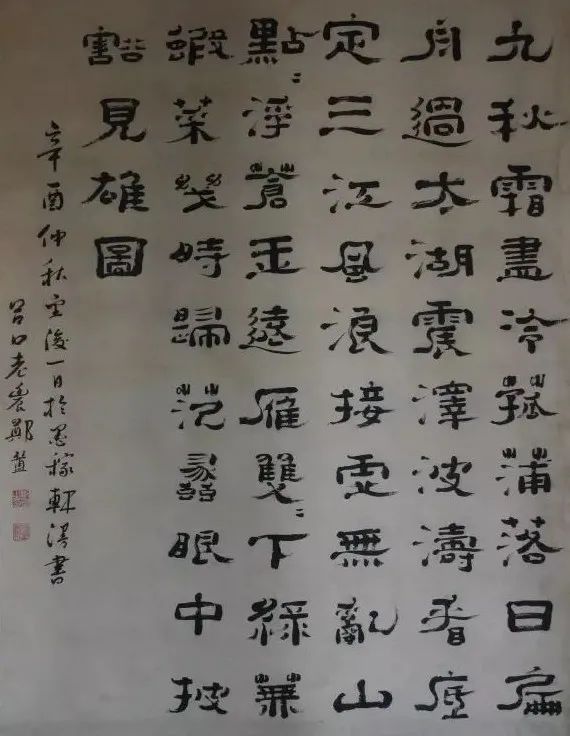 九秋霜盡冷菰蒲落日扁
舟過太湖震澤波濤春底
定三江風浪接虛無亂山
點〻浮蒼玉遠雁雙〻下綠蕪
蝦菜幾時歸范蠡眼中披
豁見雄圖
辛酉仲秋望後一日於墨稼軒漫書
谷口老農鄭簠